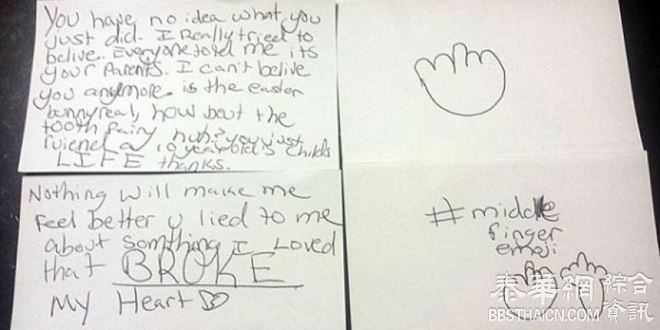 You have no idea what you
just did. I Really tried to
belive. Everyone told me its
your parents. I can't belive
you anymore. is the easter
bunny real, how bout the
tooth fairy huh? you just
ruiend a 10 year old's childs
LIFE thanks.
Nothing will make me
Feel better u lied to me
about something I Loved
that BROKE
my Heart
#middle
finger
emoji
泰華網 綜合
資訊
BBSTHAICN.COM